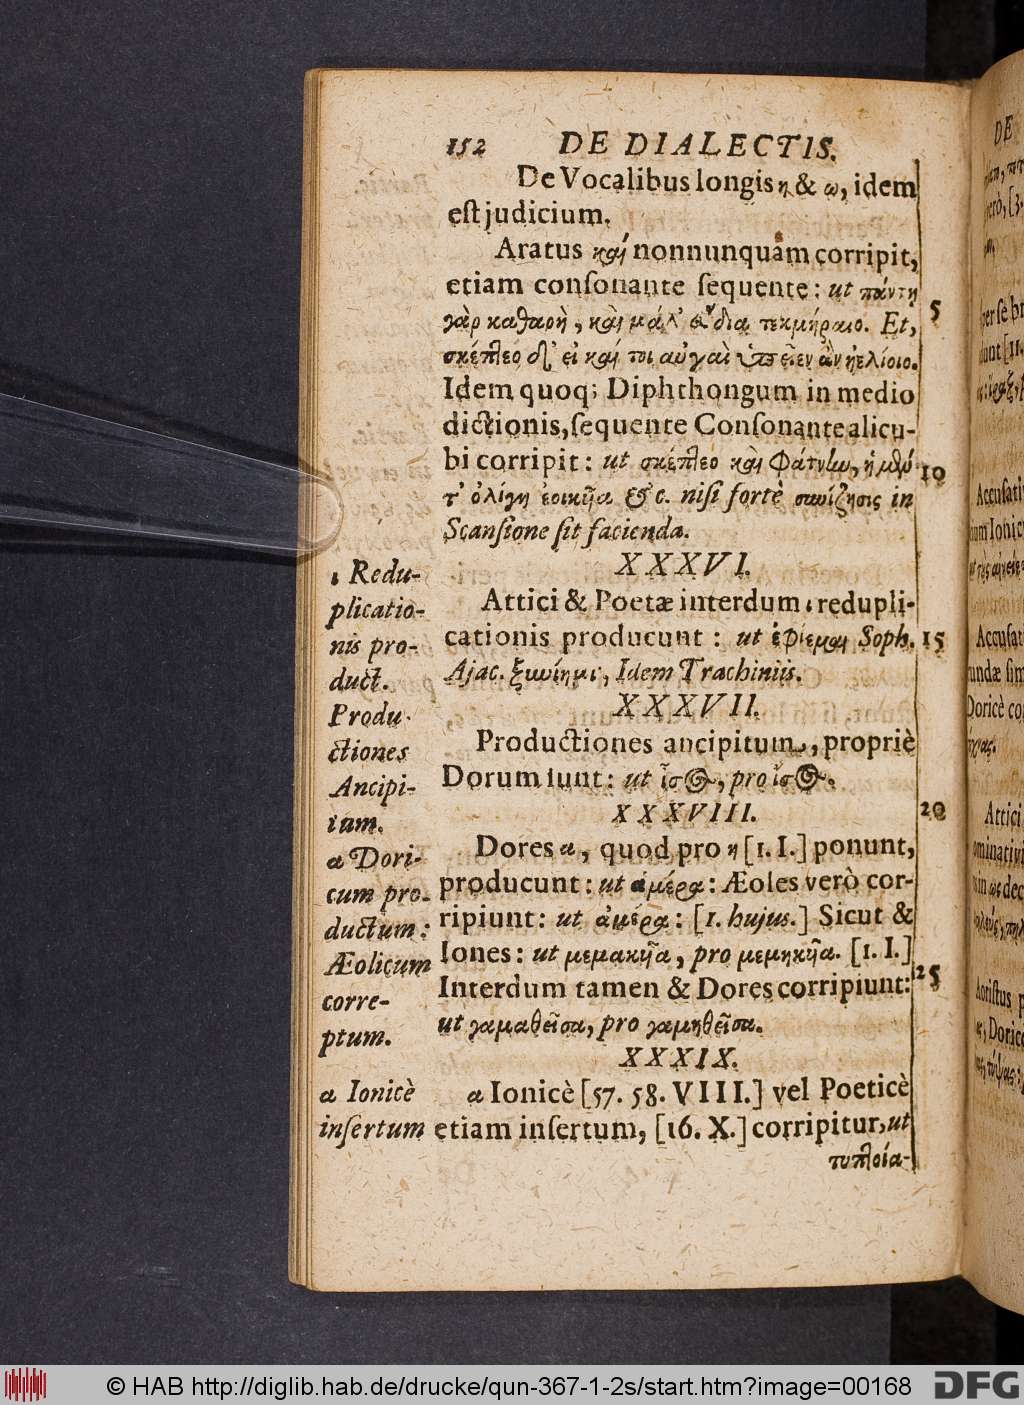 152 DE DIALECTIS.
De Vocalibus longis η & ω, idem
est judicium.
Aratus καί nonnunquàm corripit,
etiam consonante sequente: ut πάντη
γὰρ καθαρὴ, καὶ μάλ' εὔδια τεκμήραιο. Et,
σκέπτεο δ' εἰ καί τοι αὐγαὶ
Idem quoq; Diphthongum in medio
dictionis, sequente Consonante alicu-
bi corripit: ut σκέπτεο καὶ Φάτνω,
τ' ὀλίγη &c. nisi fortè συνίζησις in
Scansione sit facienda.
XXXVI.
Attici & Poetæ interdum ι redupli-
cationis producunt: ut ἐφίεμαι Soph.
Ajac. ξυνίημι, Idem Trachiniis.
XXXVII.
Productiones ancipitum, propriè
Dorum sunt: ut ἶσος, pro ἴσος.
XXXVIII.
Dores α, quod pro η [1. I.] ponunt,
producunt: ut ἁμέρα: Æoles verò cor-
ripiunt: ut ἀμέρα: [1. hujus.] Sicut &
Iones: ut μεμακυῖα, pro μεμηκυῖα. [1. I.]
Interdum tamen & Dores corripiunt:
ut γαμαθεῖσα, pro γαμηθεῖσα.
XXXIX.
α Ionicè [57. 58. VIII.] vel Poeticè
etiam insertum, [16. X.] corripitur, ut
τυπτοία-
5
10
15
20
25
ι Redu-
plicatio-
nis pro-
duct.
Produ-
ctiones
Ancipi-
tum.
α Dori-
cum pro-
ductum:
Æolicum
corre-
ptum.
α Ionicè
insertum
DE
Accusati
Accusat
Doricè co
Attici
Aoristus p
© HAB http://diglib.hab.de/drucke/qun-367-1-2s/start.htm?image=00168
DFG